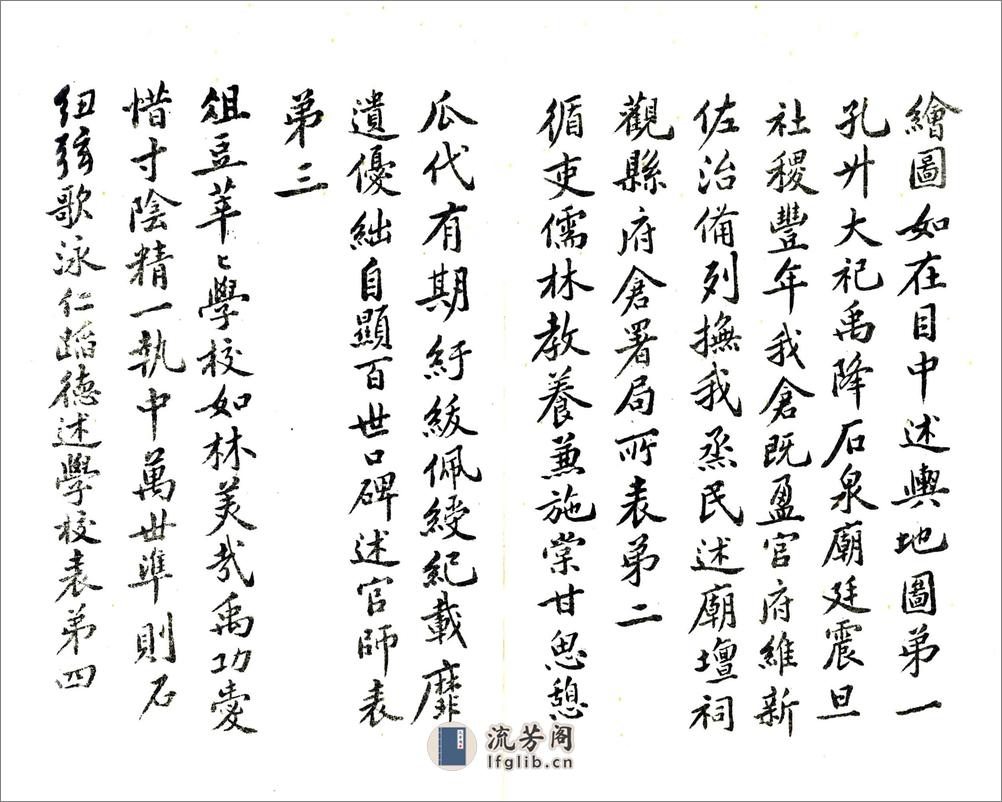 繪圖如在目中述輿地圖第一
孔廾大祀禹降石泉廟廷震旦
社稷豐年我倉既盈官府維新
佐治備列撫我烝民述廟壇祠
觀縣府倉署局所表第二
循吏儒林教養兼施棠甘思憩
瓜代有期紆紱佩綬紀載靡
遺優絀自顯百世口碑述官師表
第三
俎豆莘〻學校如林美哉禹功愛
惜寸陰精一執中萬世準則石
紐弦歌泳仁蹈德述學校表第四
流芳阁
lfglib.cn